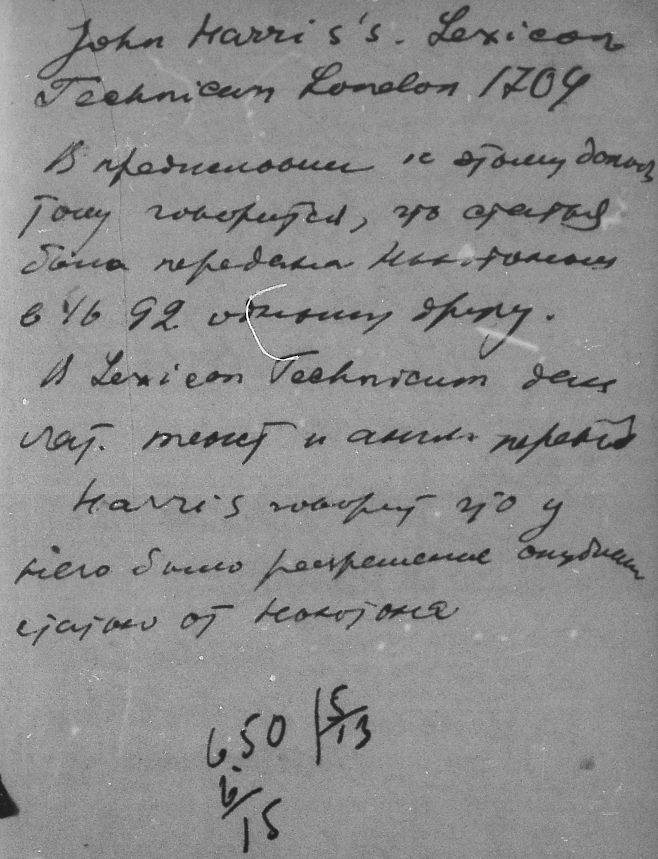 John Harris's. Lexicon
Technicum London 1704
В предисловии к этому
тому говорится, что статья
была передана Ньютоном
в 1692 одному другу.
В Lexicon Technicum дан
лат. текст и англ. перевод
Harris говорит что у
него было разрешение опублик
статью от Ньютона
650 | 5/13
6/15